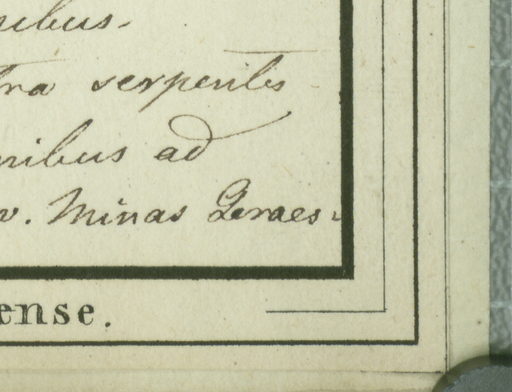 ribus.
tra serpentis
nribus ad
v. Minas Geraes.
ense.